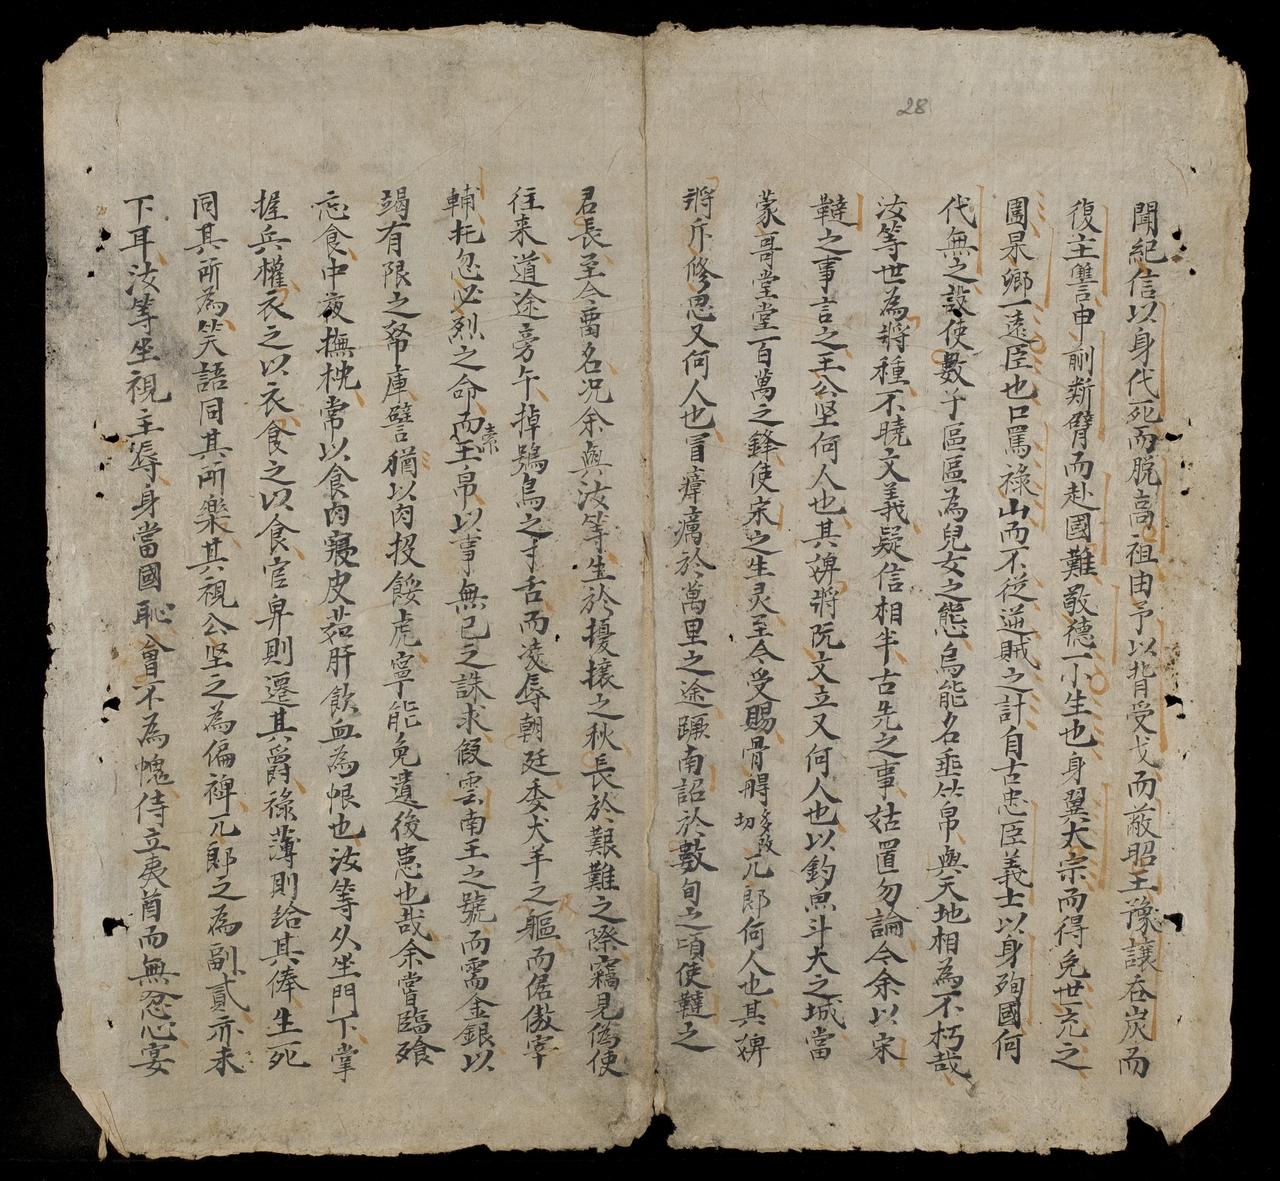 28
聞紀信以身代死而脫高祖由予以背受戈而蔽昭王豫讓呑炭而
復主讐申蒯断臂而赴國難敬德一小生也身翼太宗而得免世充之
圍杲卿一遠臣也口罵祿山而不從逆賊之計自古忠臣義士以身殉國何
代無之設使數子區區為兒女之態烏能名垂竹帛與天地相為不朽哉
汝等世為將種不曉文義疑信相半古先之事姑置勿論今余以宋
韃之事言之王公坚何人也其婢將阮文立又何人也以釣魚斗大之城當
蒙哥堂堂百萬之鋒使宋之生灵至今受賜骨䚟多改切兀郎何人也其婢
將斤修思又何人也冒瘴癘於萬里之途蹶南詔於數旬之頃使韃之
君長至今畱名况余與汝等生於擾攘之秋長於艱難之際竊見偽使
往来道途旁午掉鴞烏之寸舌而凌辱朝廷委犬羊之軀而倨傲宰
輔托忽必烈之命而索玉帛以事無已之誅求假雲南王之號而需金銀以
竭有限之帑庫譬猶以肉投餒虎寧能免遺後患也哉余嘗臨飧
忘食中夜撫枕常以食肉寢皮茹肝飲血為恨也汝等久坐門下掌
握兵權衣之以衣食之以食官卑則遷其爵祿薄則给其俸生死
同其所為笑語同其所樂其視公坚之為偏裨兀郎之為副貳亦未
下耳汝等坐視主辱身當國恥會不為愧侍立夷酋而無忿心宴